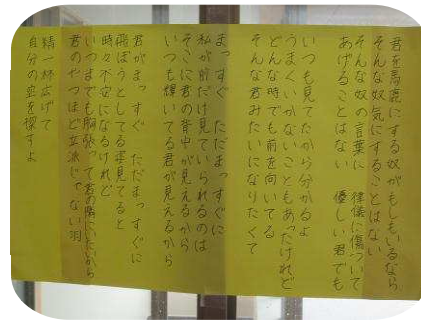 君を馬鹿にする奴がもしもいるなら
そんな奴気にすることはない
そんな奴の言葉に 律儀に傷ついて
あげることはない 優しい君でも
いつも見てたから分かるよ
うまくいかないこともあったけれど
どんな時でも前を向いてる
そんな君みたいになりたくて
まっすぐ ただまっすぐに
私が前だけ見ていられるのは
そこに君の背中が見えるから
いつも輝いてる君が見えるから
君がまっすぐ ただまっすぐに
飛ぼうとしてる姿見てると
時々不安になるけれど
いつまでも胸張って君の隣にいたいから
君のやつほど立派じゃない羽
精一杯広げて
自分の空を探すよ